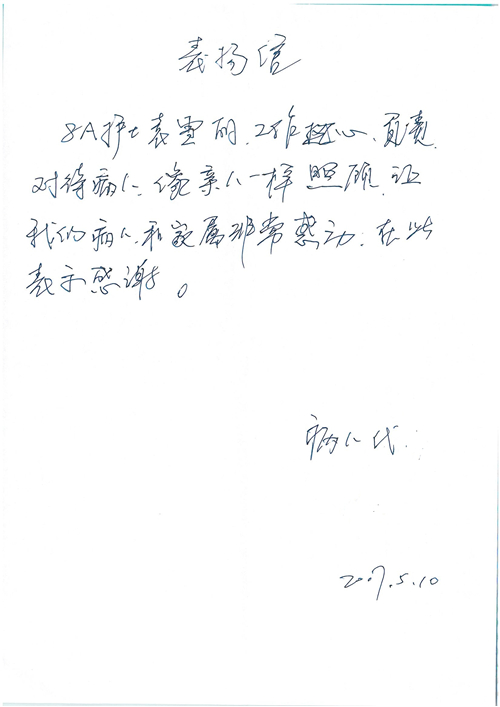 表扬信
8A护士袁雪的工作细心、负责
对待病人像亲人一样照顾、让
我们病人和家属非常感动、在此
表示感谢。
病人代
2007.5.10